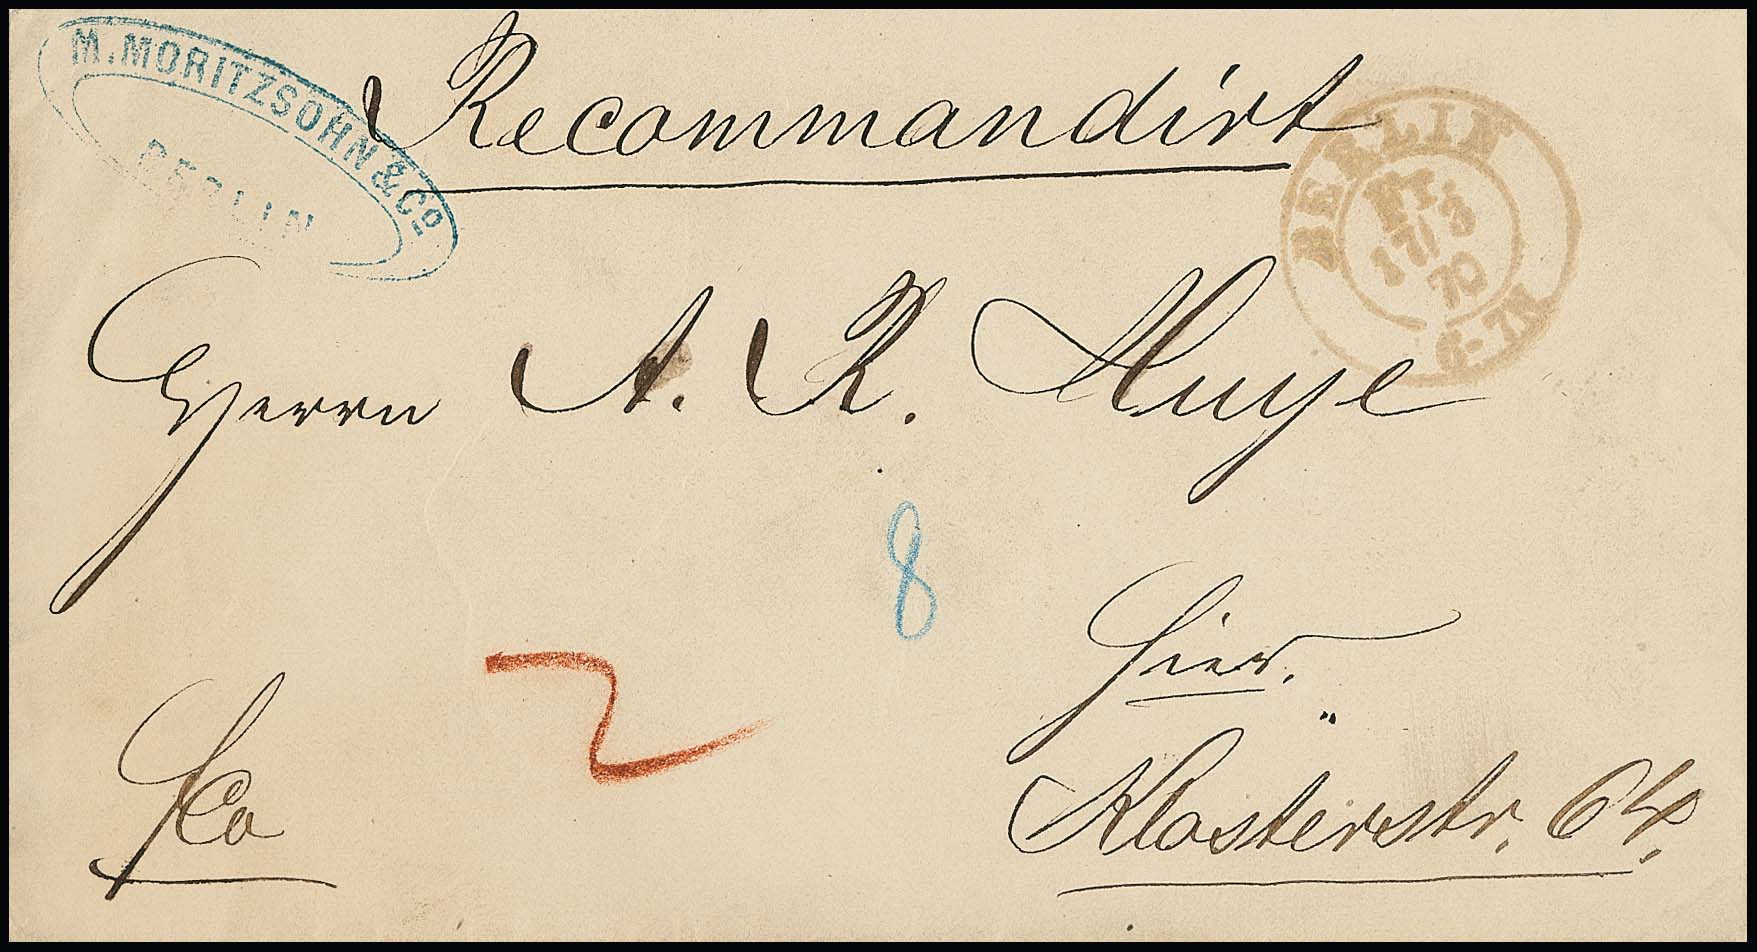 M. MORITZSOHN & Co.
BERLIN
Recommandirt
BERLIN
P.T.
17/3
70
6-7N
Herrn A. R. Huye
8
Hier.
2
fco
Klosterstr. 64.